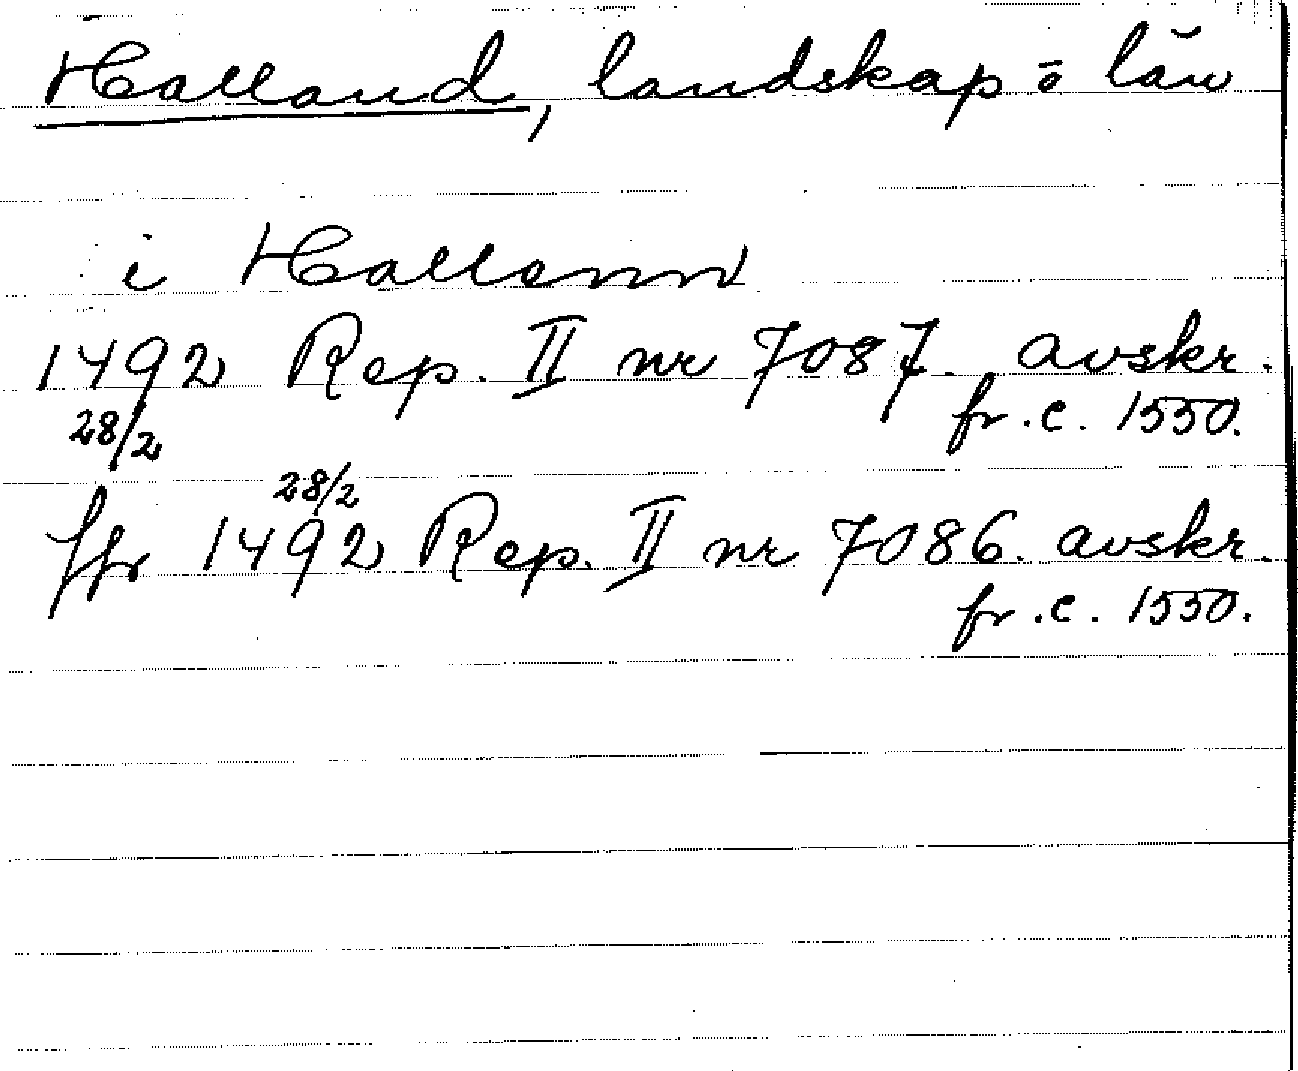 Halland, landskap o län
i Hallenn
1492 Rep. II nr 7087. avskr.
28/2 fr. c. 1550.
28/2
Jfr 1492 Rep. II nr 7086. avskr.
fr. c. 1550.